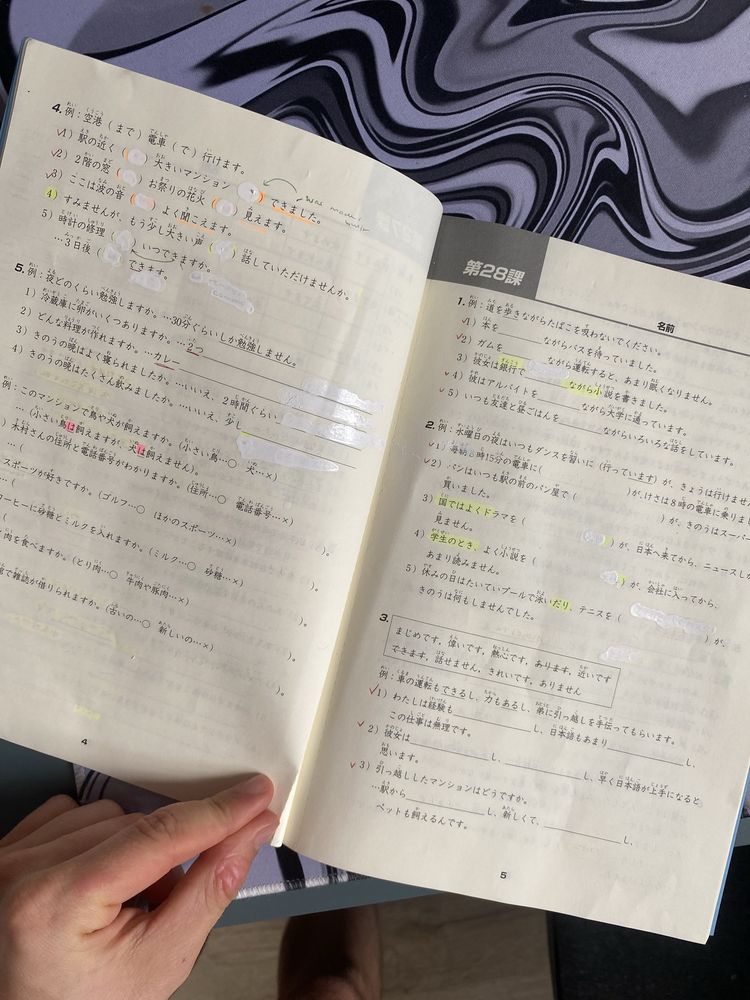 4. 例：空港（まで）電車（で）行けます。
1）駅の近く（　）大きいマンション（　）できました。
was made/
built
2）2階の窓（　）お祭りの花火（　）見えます。
3）ここは波の音（　）よく聞こえます。
4）すみませんが、もう少し大きい声（　）話していただけませんか。
5）時計の修理（　）いつできますか。
…3日後（　）できます。
5. 例：夜どのくらい勉強しますか。…30分ぐらいしか勉強しません。
1）冷蔵庫に卵がいくつありますか。…２つ
2）どんな料理が作れますか。…カレー
3）きのうの晩はよく寝られましたか。…いいえ、2時間ぐらい
4）きのうの晩はたくさん飲みましたか。…いいえ、少し
例：このマンションで鳥や犬が飼えますか。（小さい鳥…○　犬…×）
…（小さい鳥は飼えますが、犬は飼えません）。
）木村さんの住所と電話番号がわかりますか。（住所…○　電話番号…×）
…（　）。
スポーツが好きですか。（ゴルフ…○　ほかのスポーツ…×）
（　）。
コーヒーに砂糖とミルクを入れますか。（ミルク…○　砂糖…×）
（　）。
肉を食べますか。（とり肉…○　牛肉や豚肉…×）
（　）。
で雑誌が借りられますか。（古いの…○　新しいの…×）
）。
4
第28課
名前
1. 例：道を歩きながらたばこを吸わないでください。
1）本を＿＿＿ながらバスを待っていました。
2）ガムを＿＿＿ながら運転すると、あまり眠くなりません。
3）彼女は銀行で＿＿＿ながら小説を書きました。
4）彼はアルバイトを＿＿＿ながら大学に通っています。
5）いつも友達と昼ごはんを＿＿＿ながらいろいろな話をしています。
2. 例：水曜日の夜はいつもダンスを習いに（行っています）が、きょうは行けませ
1）毎朝8時15分の電車に（　）が、けさは8時の電車に乗りまし
2）パンはいつも駅の前のパン屋で（　）が、きのうはスーパー
買いました。
3）国ではよくドラマを（　）が、日本へ来てから、ニュースし
見ません。
4）学生のとき、よく小説を（　）が、会社に入ってから、
あまり読みません。
5）休みの日はたいていプールで泳いだり、テニスを（　）が、
きのうは何もしませんでした。
3. まじめです，偉いです，熱心です，あります，近いです
できます，話せません，きれいです，ありません
例：車の運転もできるし、力もあるし、弟に引っ越しを手伝ってもらいます。
1）わたしは経験も＿＿＿し、日本語もあまり＿＿＿し、
この仕事は無理です。
2）彼女は＿＿＿し、＿＿＿し、早く日本語が上手になると
思います。
3）引っ越ししたマンションはどうですか。
…駅から＿＿＿し、新しくて、＿＿＿し、
ペットも飼えるんです。
5